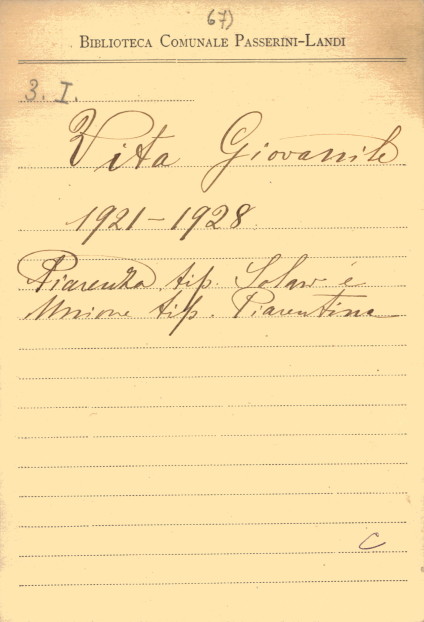 67)
BIBLIOTECA COMUNALE PASSERINI-LANDI
3. I.
Vita Giovanile
1921-1928
Piacenza, tip. Solari e
Unione tip. Piacentina
C